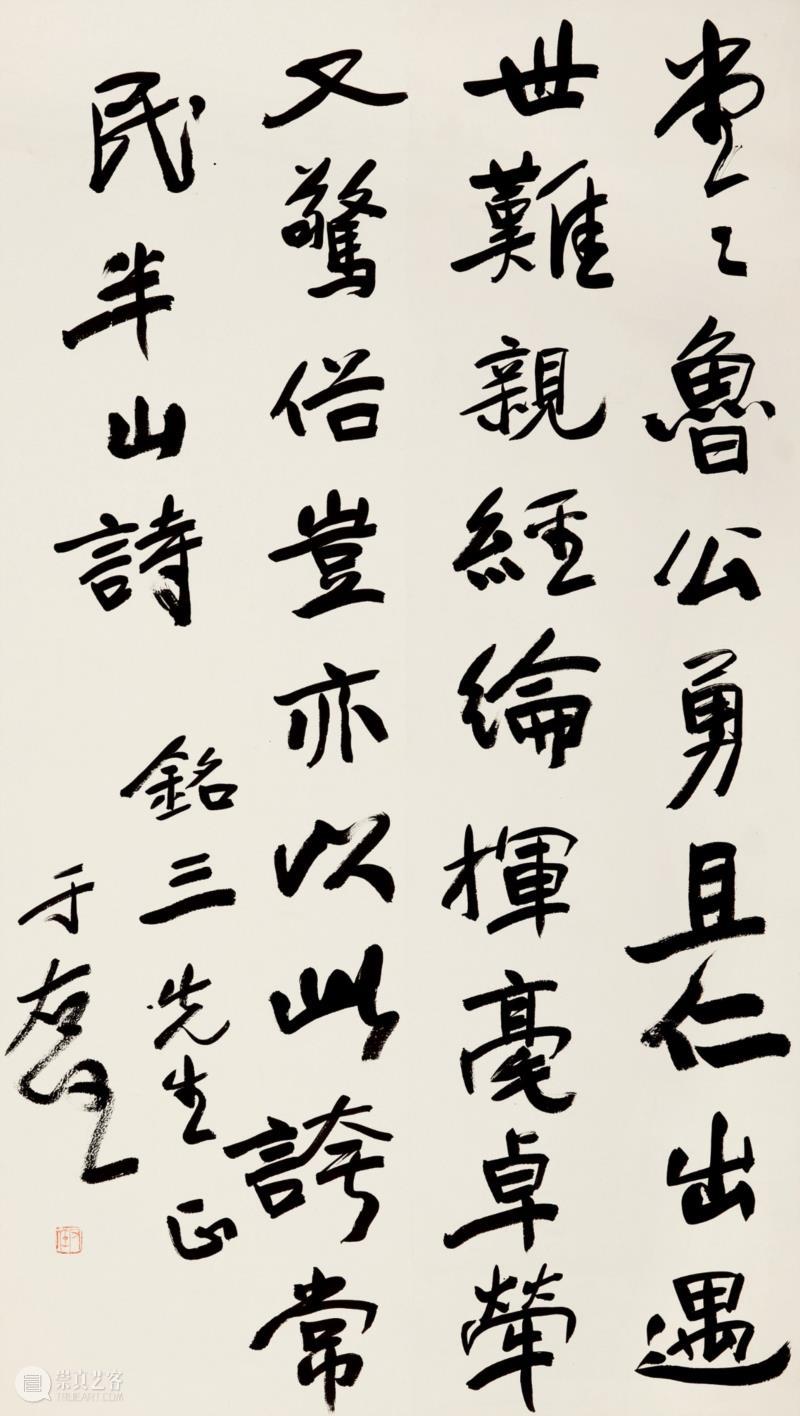 堂々魯公勇且仁出遇
世難親經綸揮毫卓犖
又驚俗豈亦以此誇常
民半山詩
銘三先生正
于右任
崇真艺客
TRUEART.COM